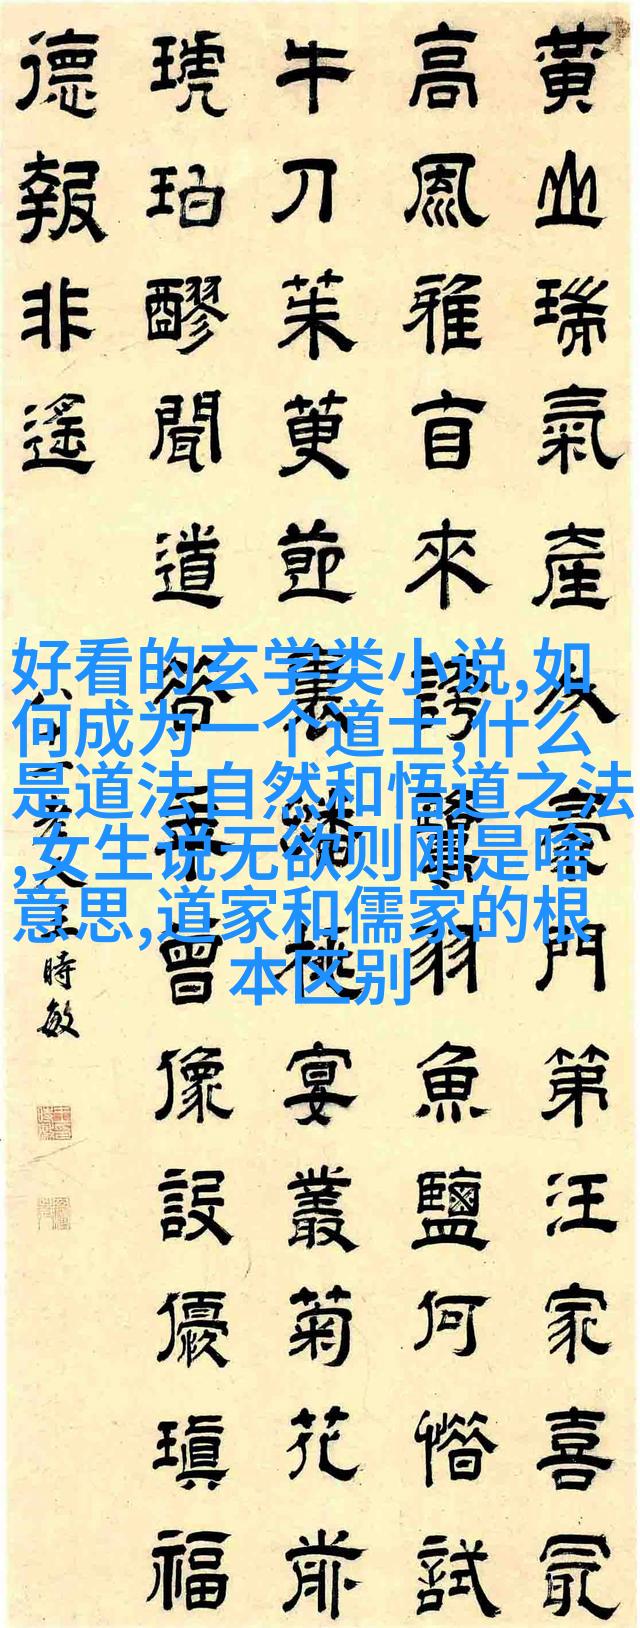 黃山瑞氣產人豪門第汪家喜最
高風雅盲來誇羽魚鹽何惜試
牛刀茱萸節裏宴叢菊花前
琥珀醪聞道曾像設優瑱福
德報非遙
時敏
好看的玄学类小说,如
何成为一个道士,什么
是道法自然和悟道之法
,女生说无欲则刚是啥
意思,道家和儒家的根
本区别